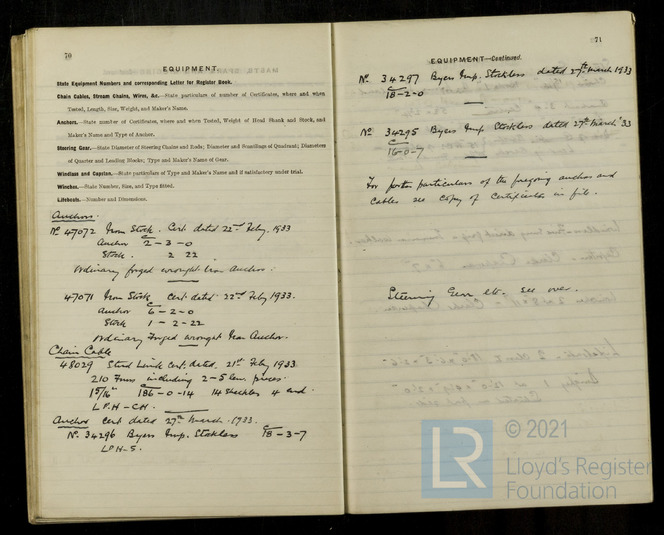 70
EQUIPMENT.
State Equipment Numbers and corresponding Letter for Register Book.
Chain Cables, Stream Chains, Wires, &c.—State particulars of number of Certificates, where and when
Tested, Length, Size, Weight, and Maker's Name.
Anchors.—State number of Certificates, where and when Tested, Weight of Head Shank and Stock, and
Maker's Name and Type of Anchor.
Steering Gear.—State Diameter of Steering Chains and Rods; Diameter and Scantlings of Quadrant; Diameters
of Quarter and Leading Blocks; Type and Maker's Name of Gear.
Windlass and Capstan.—State particulars of Type and Maker's Name and if satisfactory under trial.
Winches.—State Number, Size, and Type fitted.
Lifeboats.—Number and Dimensions.
Anchors.
No 47072 Iron Stock. Cert. dated 22nd Feby, 1933
Anchor 2 - 3 - 0
Stock. 2 22
Ordinary forged wrought Iron Anchor.
47071 Iron Stock Cert. dated 22nd Feby 1933.
Anchor 6 - 2 - 0
Stock 1 - 2 - 22
Ordinary Forged wrought Iron Anchor.
Chain Cable
48029 Stud Link Cert. dated, 21st Feby 1933
210 Fms including 2 - 5 pieces.
1 5/16" 186 - 0 - 14 14 shackles 4 end.
L.P.H - CH.
Anchor Cert dated 27th March. 1933.
No. 34296 Byers Imp. Stockless 18 - 3 - 7
LPH - S.
71
EQUIPMENT—Continued.
No 34297 Byers Imp. Stockless dated 27th March 1933
C
18 - 2 - 0
No 34295 Byers Imp. Stockless dated 27th March '33
C
16 - 0 - 7
For further particulars of the foregoing anchors and
cables see copy of certificates in file.
Steering Gear etc. see over.
© 2021
LR
Lloyd's Register
Foundation